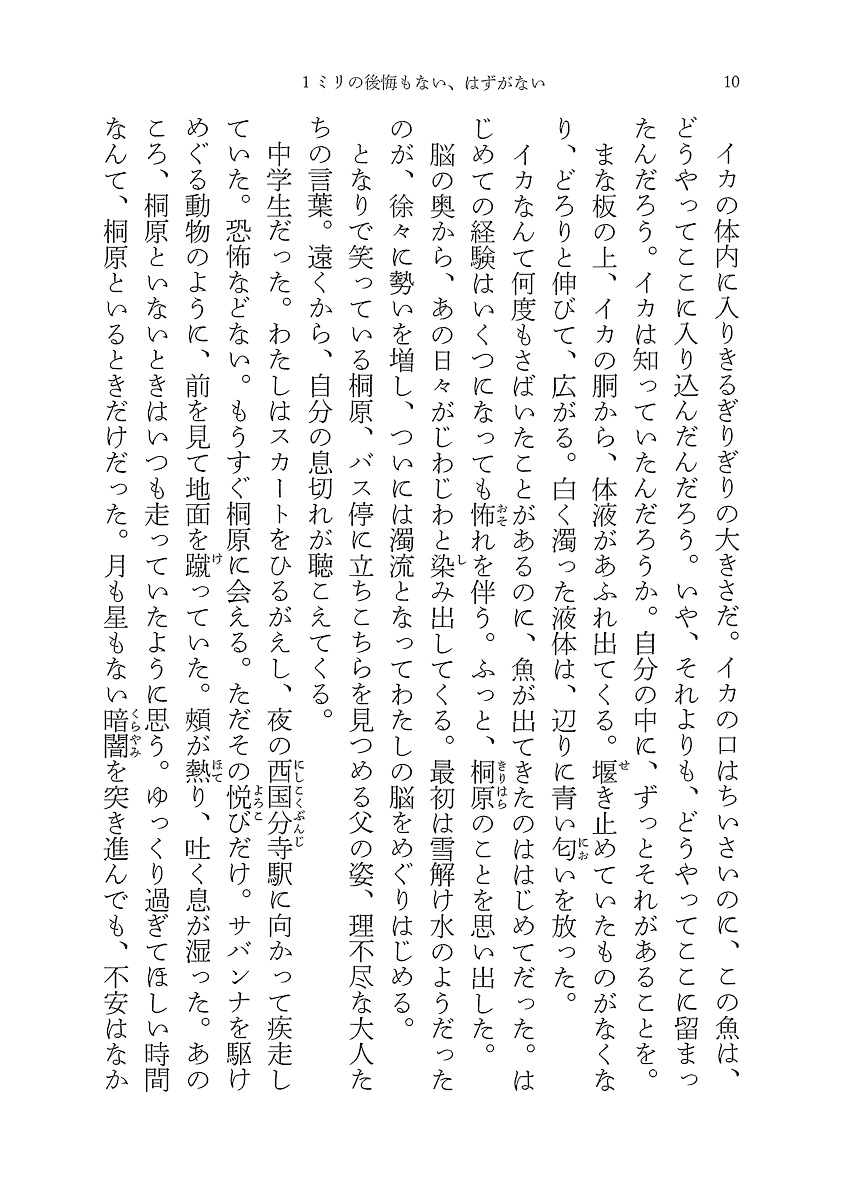 1ミリの後悔もない、はずがない
10
イカの体内に入りきるぎりぎりの大きさだ。イカの口はちいさいのに、この魚は、
どうやってここに入り込んだんだろう。いや、それよりも、どうやってここに留まっ
たんだろう。イカは知っていたんだろうか。自分の中に、ずっとそれがあることを。
まな板の上、イカの胴から、体液があふれ出てくる。堰き止めていたものがなくな
り、どろりと伸びて、広がる。白く濁った液体は、辺りに青い匂いを放った。
イカなんて何度もさばいたことがあるのに、魚が出てきたのははじめてだった。は
じめての経験はいくつになっても怖れを伴う。ふっと、桐原のことを思い出した。
脳の奥から、あの日々がじわじわと染み出してくる。最初は雪解け水のようだった
のが、徐々に勢いを増し、ついには濁流となってわたしの脳をめぐりはじめる。
となりで笑っている桐原、バス停に立ちこちらを見つめる父の姿、理不尽な大人た
ちの言葉。遠くから、自分の息切れが聴こえてくる。
中学生だった。わたしはスカートをひるがえし、夜の西国分寺駅に向かって疾走し
ていた。恐怖などない。もうすぐ桐原に会える。ただその悦びだけ。サバンナを駆け
めぐる動物のように、前を見て地面を蹴っていた。頬が熱り、吐く息が湿った。あの
ころ、桐原といないときはいつも走っていたように思う。ゆっくり過ぎてほしい時間
なんて、桐原といるときだけだった。月も星もない暗闇を突き進んでも、不安はなか